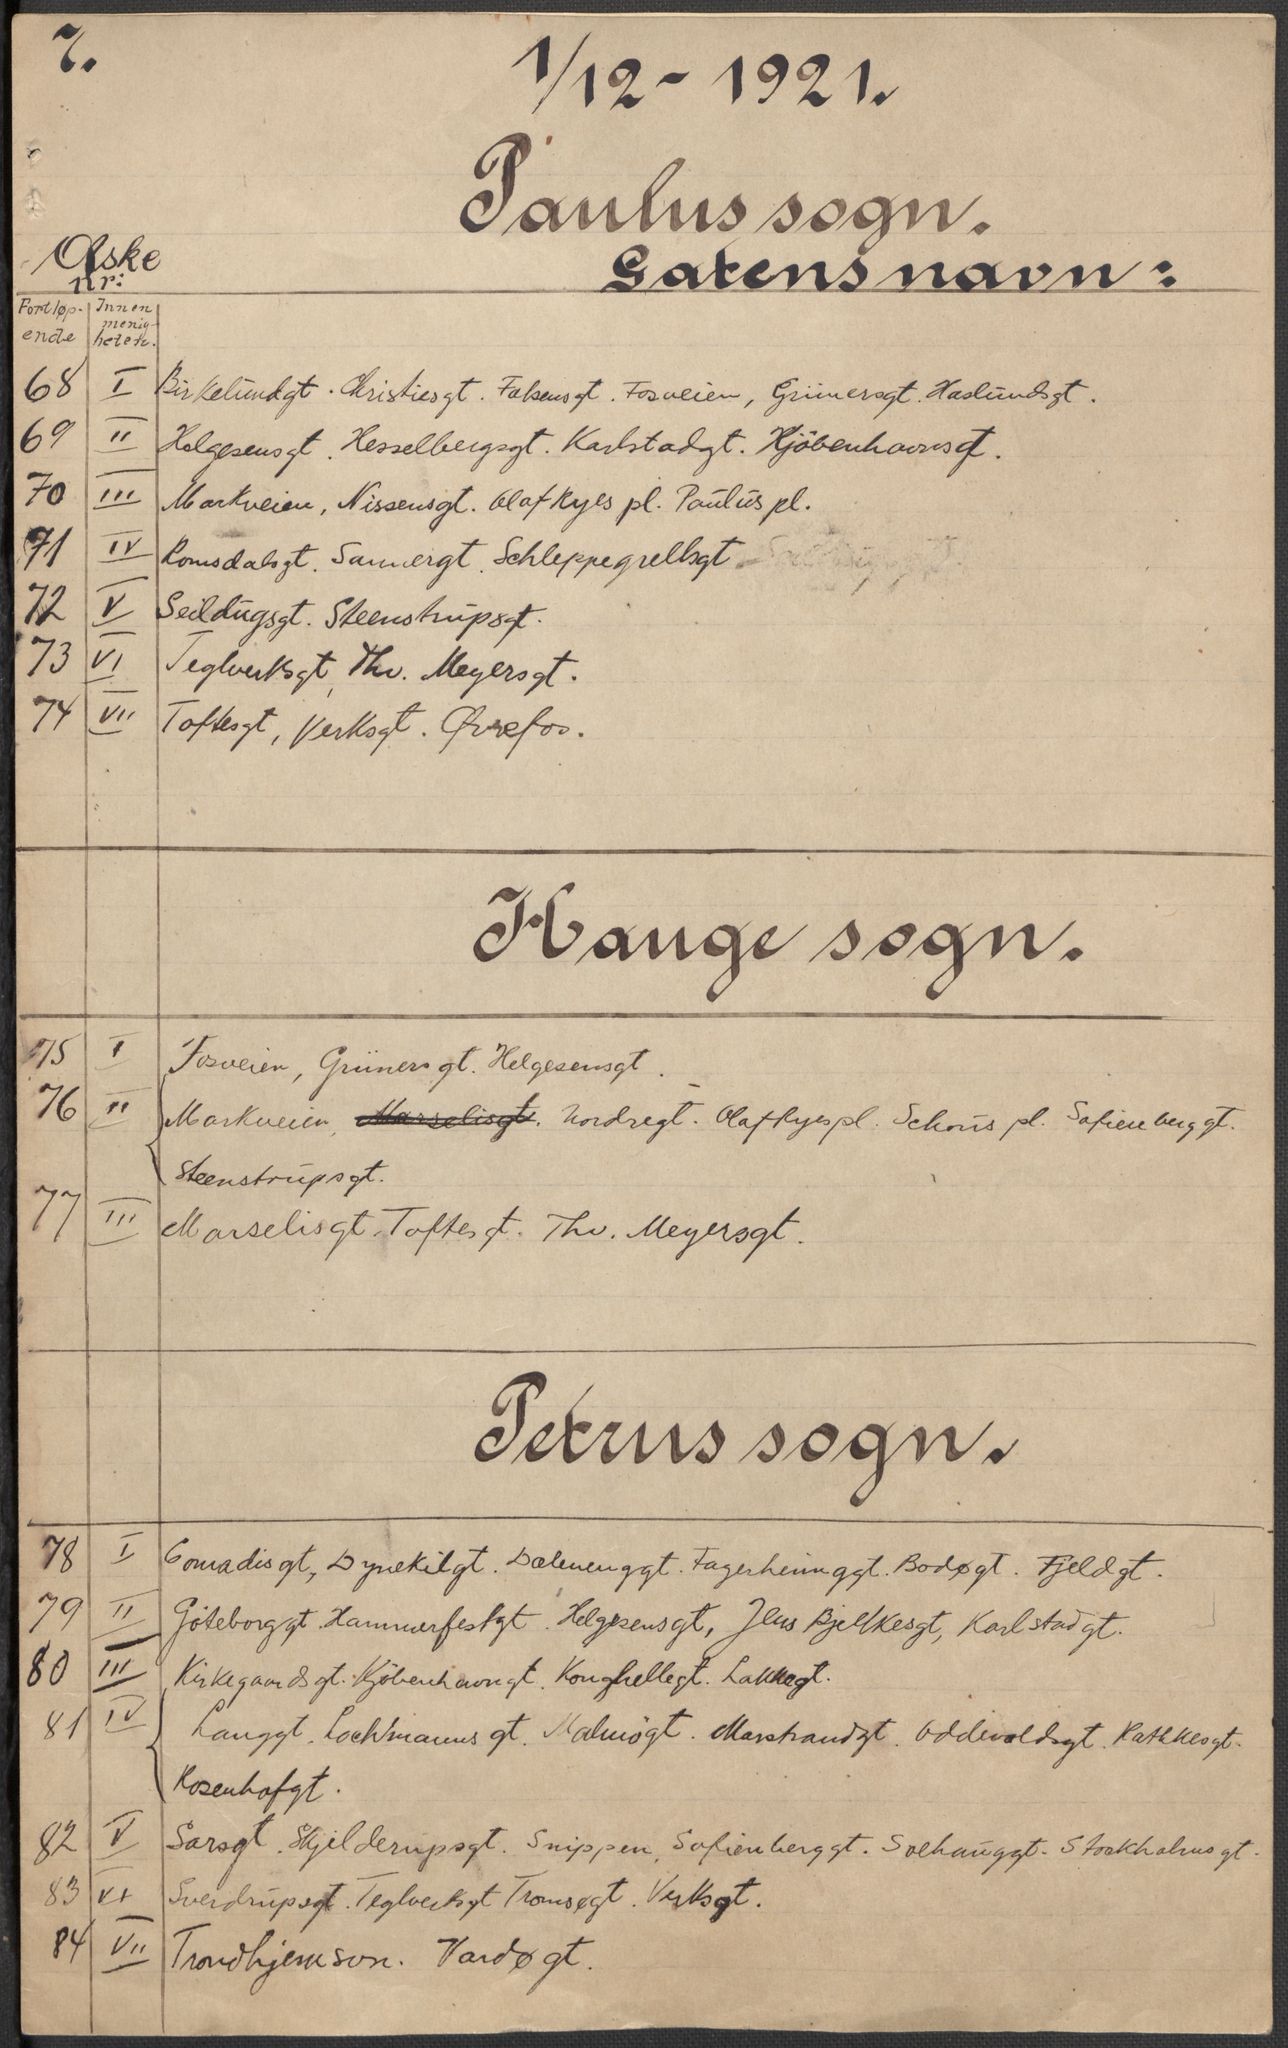 7.
1/12 - 1921.
Paulus sogn.
Æske nr:
Gatens navn:
Fortløp-ende
Innen menig-heten.
68 I Birkelundgt. Christiesgt. Falsensgt. Fosveien, Grünersgt. Haslundsgt.
69 II Helgesensgt. Hesselbergsgt. Karlstadgt. Kjöbenhavnsgt.
70 III Markveien, Nissensgt. Olaf Ryes pl. Paulus pl.
71 IV Romsdalsgt. Sannergt. Schleppegrellsgt
72 V Seildugsgt. Steenstrupsgt.
73 VI Teglverksgt, Thv. Meyersgt.
74 VII Toftesgt, Verksgt. Øvrefos.
Hauge sogn.
75 I Fosveien, Grünersgt. Helgesensgt.
76 II Markveien, Marselisgt. Nordregt. Olaf Ryes pl. Schous pl. Sofienberggt.
Steenstrupsgt.
77 III Marselisgt. Toftesgt. Thv. Meyersgt.
Petrus sogn.
78 I Conradisgt, Dynekilgt. Dælenenggt. Fagerheimgt. Bodøgt. Fjeldgt.
79 II Göteborggt. Hammerfestgt. Helgesensgt, Jens Bjelkesgt, Karlstadgt.
80 III Kirkegaardsgt. Kjöbenhavngt. Konghellegt. Lakkegt.
81 IV Langgt. Lochmannsgt. Malmögt. Marstrandgt. Oddevoldsgt. Rathkesgt.
Rosenhofgt.
82 V Sarsgt. Skjelderupsgt. Snippen, Sofienberggt. Solhauggt. Stockholmsgt.
83 VI Sverdrupsgt. Teglverksgt Tromsøgt. Verksgt.
84 VII Trondhjemsvn. Vardøgt.